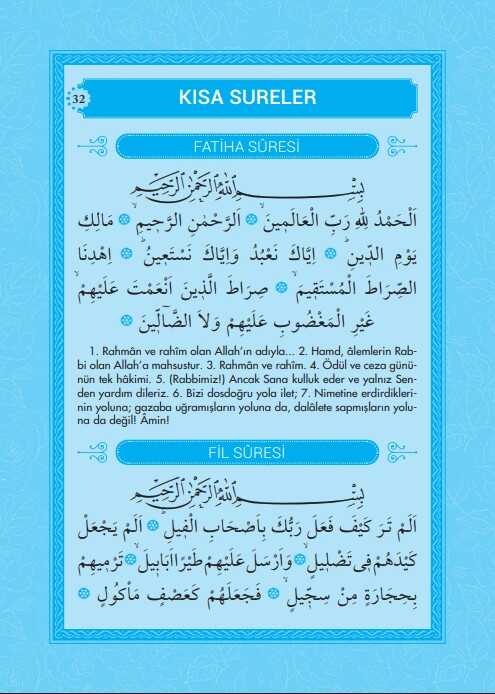 32
KISA SURELER
FATİHA SÛRESİ
بِسْمِ اللّٰهِ الرَّحْمٰنِ الرَّحِيمِ
اَلْحَمْدُ لِلّٰهِ رَبِّ الْعَالَمِينَۙ ۞ اَلرَّحْمٰنِ الرَّحِيمِۙ ۞ مَالِكِ
يَوْمِ الدّ۪ينِۜ ۞ اِيَّاكَ نَعْبُدُ وَاِيَّاكَ نَسْتَع۪ينُۜ ۞ اِهْدِنَا
الصِّرَاطَ الْمُسْتَق۪يمَۙ ۞ صِرَاطَ الَّذ۪ينَ اَنْعَمْتَ عَلَيْهِمْۙ
غَيْرِ الْمَغْضُوبِ عَلَيْهِمْ وَلَا الضَّٓالّ۪ينَ ۞
1. Rahmân ve rahîm olan Allah’ın adıyla... 2. Hamd, âlemlerin Rab-
bi olan Allah’a mahsustur. 3. Rahmân ve rahîm. 4. Ödül ve ceza günü-
nün tek hâkimi. 5. (Rabbimiz!) Ancak Sana kulluk eder ve yalnız Sen-
den yardım dileriz. 6. Bizi dosdoğru yola ilet; 7. Nimetine erdirdikleri-
nin yoluna; gazaba uğramışların yoluna da, dalâlete sapmışların yolu-
na da değil! Âmin!
FİL SÛRESİ
بِسْمِ اللّٰهِ الرَّحْمٰنِ الرَّحِيمِ
اَلَمْ تَرَ كَيْفَ فَعَلَ رَبُّكَ بِاَصْحَابِ الْف۪يلِ ۞ اَلَمْ يَجْعَلْ
كَيْدَهُمْ ف۪ي تَضْل۪يلٍۙ ۞ وَاَرْسَلَ عَلَيْهِمْ طَيْرًا اَبَاب۪يلَۙ ۞ تَرْم۪يهِمْ
بِحِجَارَةٍ مِنْ سِجّ۪يلٍۙ ۞ فَجَعَلَهُمْ كَعَصْفٍ مَأْكُولٍ ۞